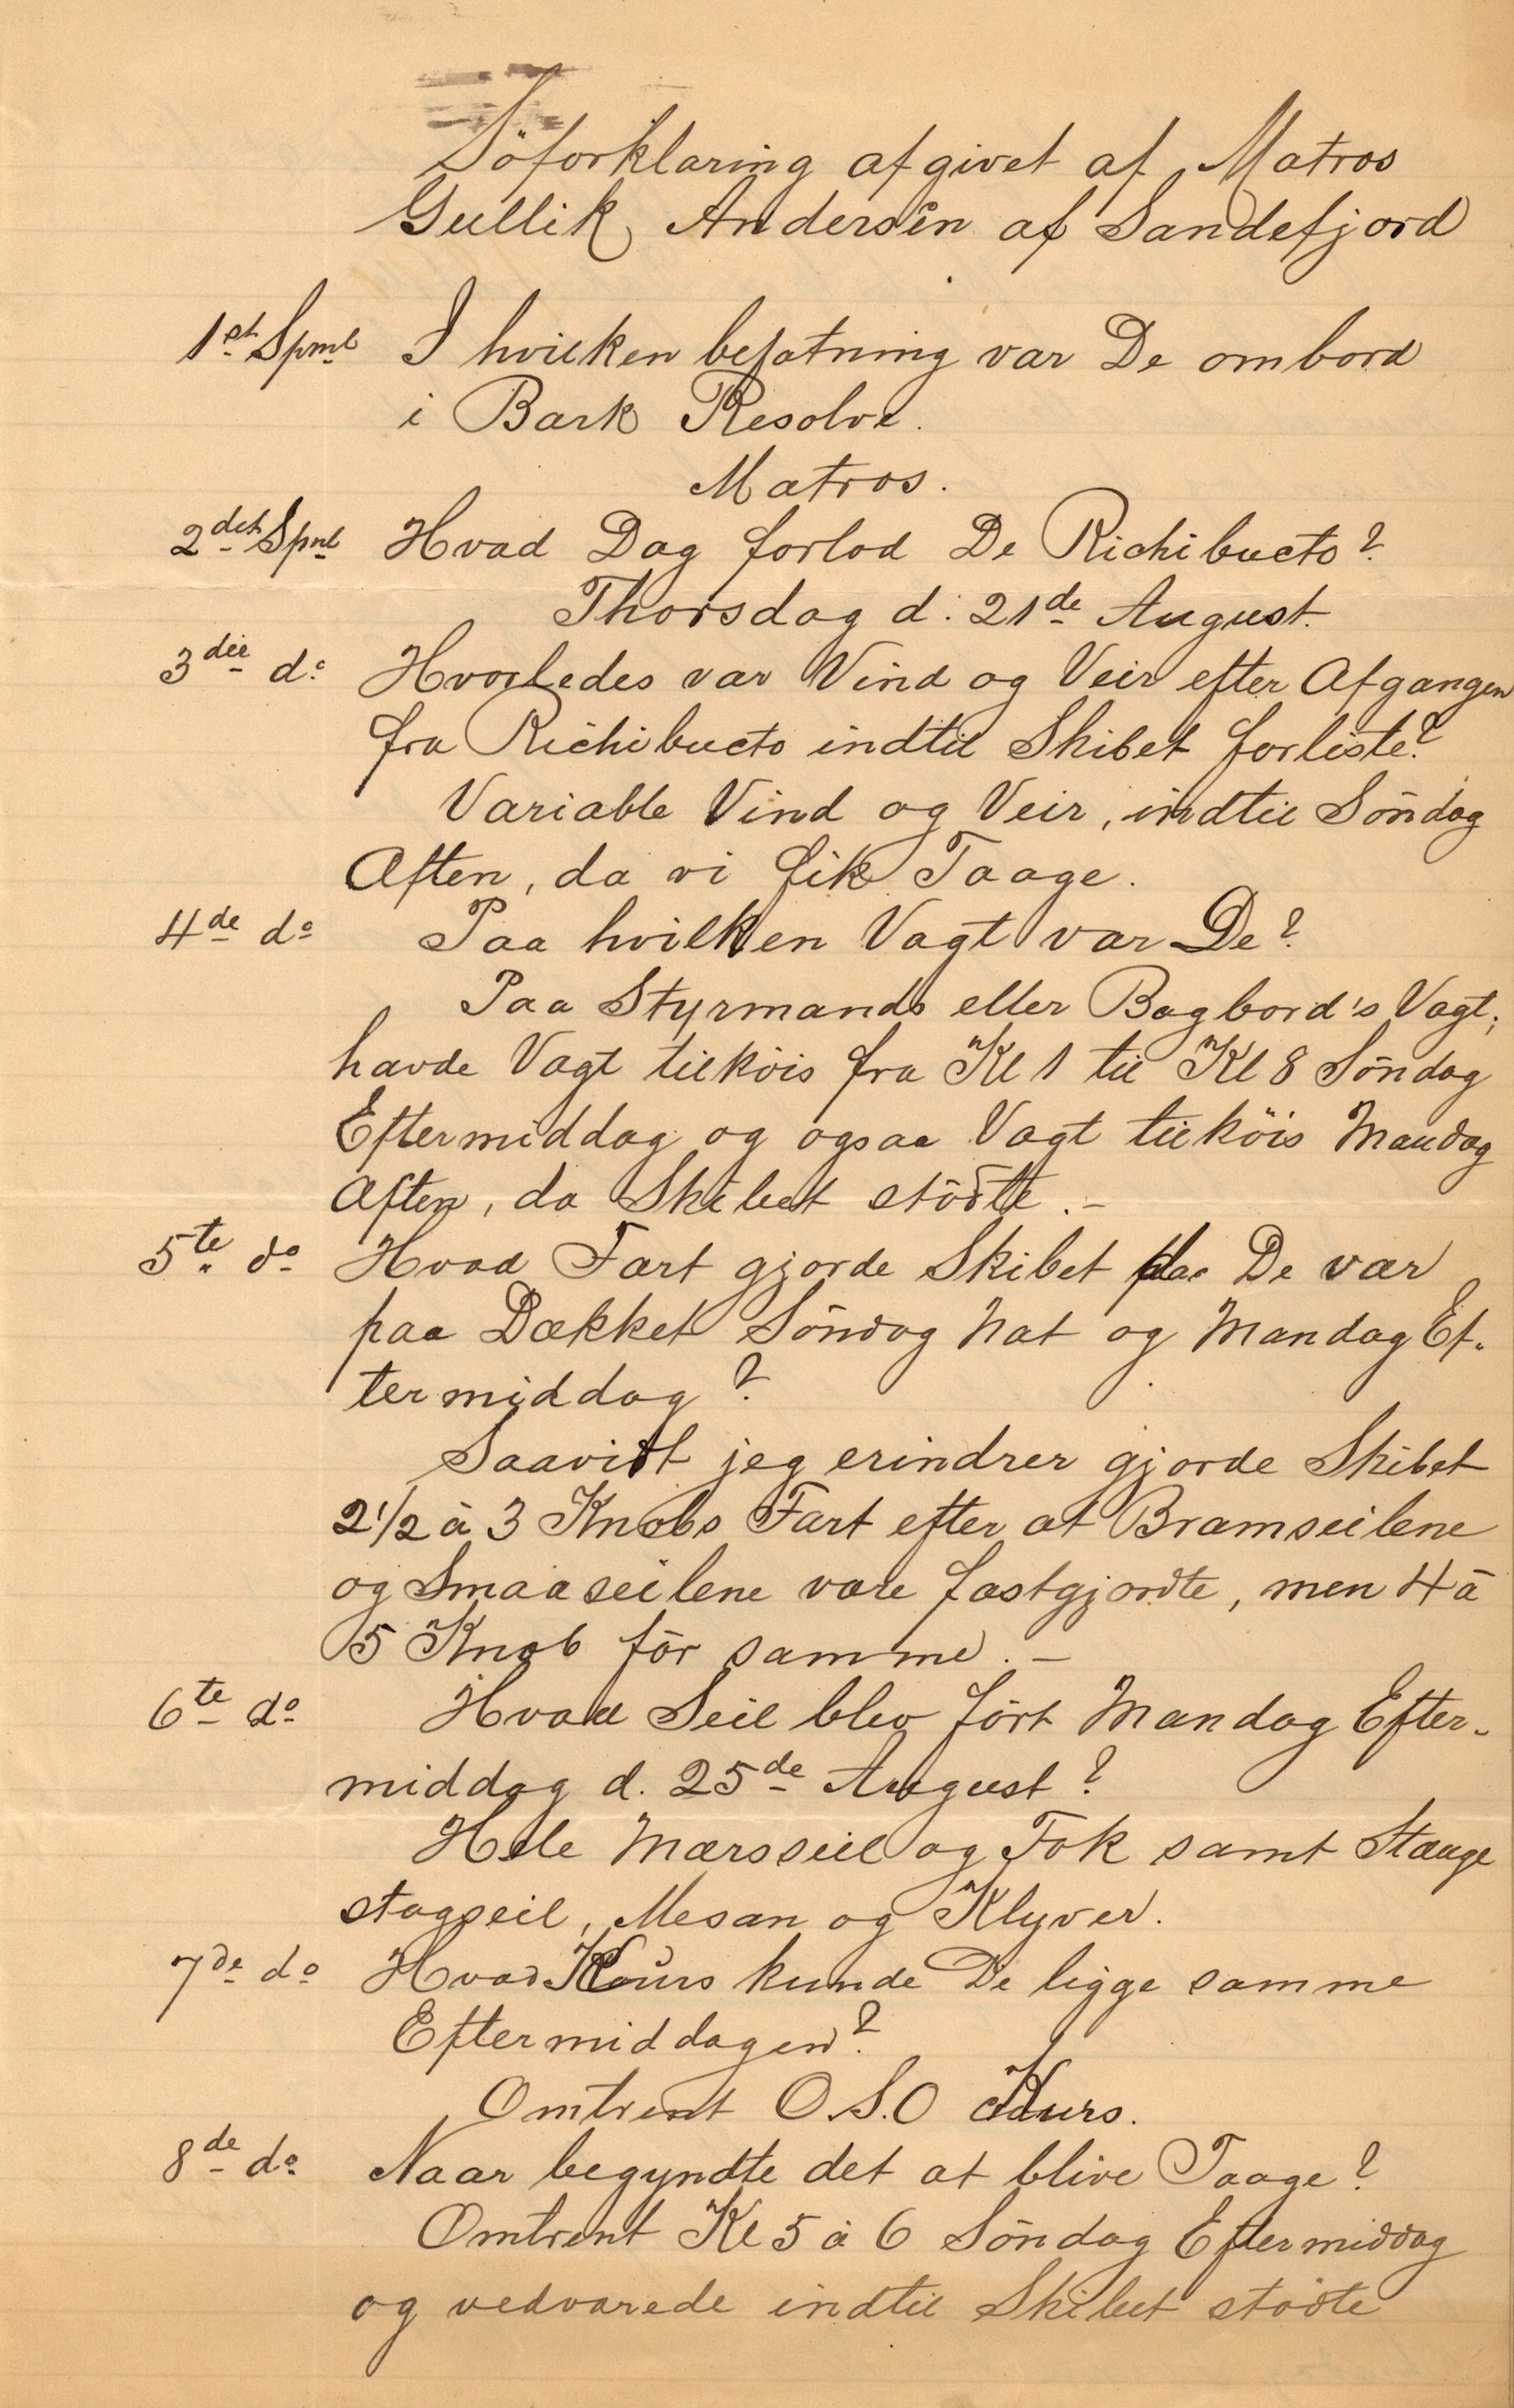 Söforklaring afgivet af Matros
Gullik Andersen af Sandefjord
1st Spml I hvilken befatning var De ombord
i Bark Resolve.
Matros.
2det Spml Hvad Dag forlod De Richibucto?
Thorsdag d. 21de August.
3die do Hvorledes var Vind og Veir efter Afgangen
fra Richibucto indtil Skibet forliste?
Variable Vind og Veir, indtil Söndag
Aften, da vi fik Taage.
4de do Paa hvilken Vagt var De?
Paa Styrmands eller Bagbord's Vagt;
havde Vagt tilköis fra Kl 1 til Kl 8 Söndag
Eftermiddag og ogsaa Vagt tilköis Mandag
Aften, da Skibet stödte. –
5te do Hvad Fart gjorde Skibet da De var
paa Dækket Söndag Nat og Mandag Ef-
termiddag?
Saavidt jeg erindrer gjorde Skibet
2 1/2 à 3 Knobs Fart efter at Bramseilene
og Smaaseilene vare fastgjordte, men 4 à
5 Knob för samme. –
6te do Hvad Seil blev fört Mandag Efter-
middag d. 25de August?
Hele Mærsseil og Fok samt Stænge
stagseil, Mesan og Klyver.
7de do Hvad Kours kunde De ligge samme
Eftermiddagen?
Omtrent O.S.O Kurs.
8de do Naar begyndte det at blive Taage?
Omtrent Kl 5 à 6 Söndag Eftermiddag
og vedvarede indtil Skibet stödte